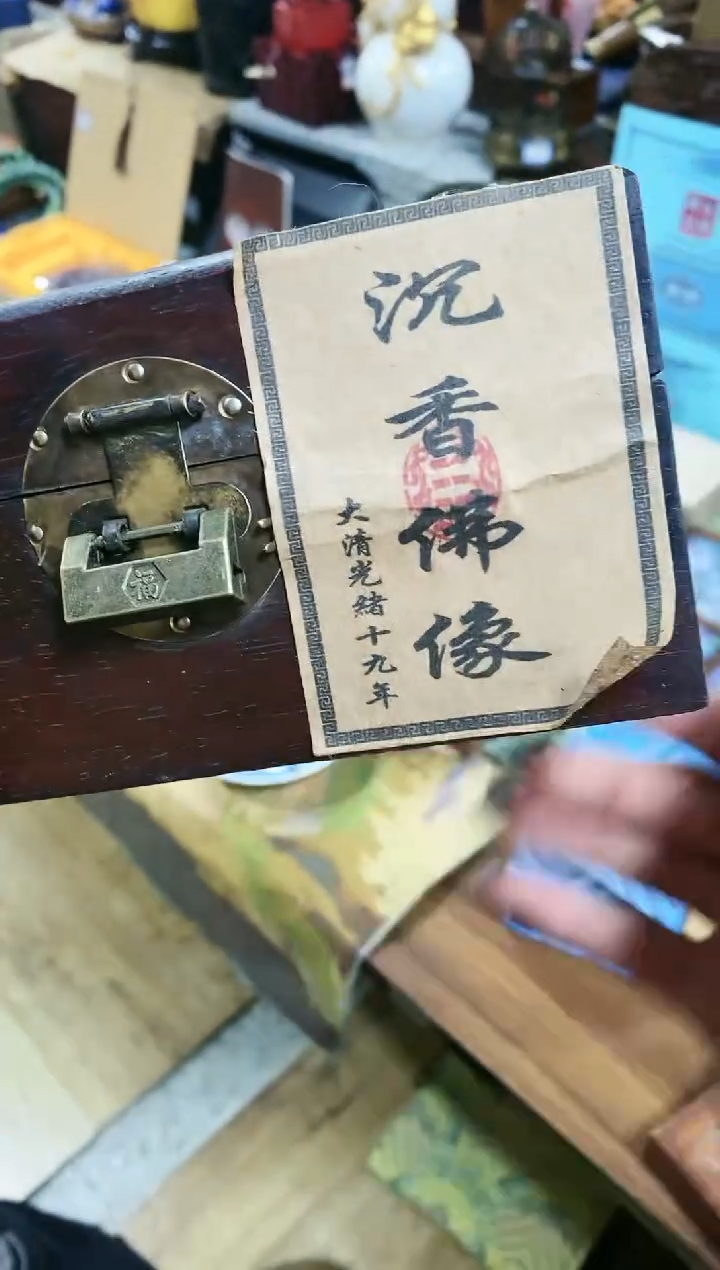 沉香佛像
大清光緒十九年
福